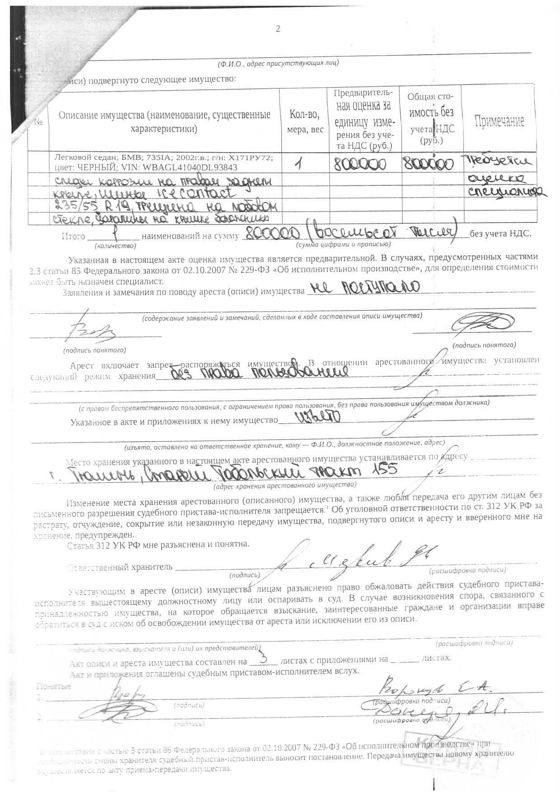 2
(Ф.И.О., адрес присутствующих лиц)
подвергнуто следующее имущество:
№
Описание имущества (наименование, существенные характеристики)
Кол-во, мера, вес
Предварительная оценка за единицу измерения без учета НДС (руб.)
Общая стоимость без учета НДС (руб.)
Примечание
Легковой седан; БМВ; 735IA; 2002г.в.; г/н: Х171РУ72;
цвет: ЧЕРНЫЙ; VIN: WBAGL41040DL93843
1
800000
800000
требуется
оценка
специалиста
следы коррозии на правом заднем
крыле, шины ice contact
235/55 R19, трещина на лобовом
стекле,
на крыше
Итого 1 наименований на сумму 800000 (восемьсот тысяч) без учета НДС.
(количество) (сумма цифрами и прописью)
Указанная в настоящем акте оценка имущества является предварительной. В случаях, предусмотренных частями
2,3 статьи 85 Федерального закона от 02.10.2007 № 229-ФЗ «Об исполнительном производстве», для определения стоимости
может быть назначен специалист.
Заявления и замечания по поводу ареста (описи) имущества не поступало
(содержание заявлений и замечаний, сделанных в ходе составления описи имущества)
(подпись понятого) (подпись понятого)
Арест включает запрет распоряжаться имуществом. В отношении арестованного имущества установлен
следующий режим хранения без права пользования
(с правом беспрепятственного пользования, с ограничением права пользования, без права пользования имуществом должника)
Указанное в акте и приложениях к нему имущество изъято
(изъято, оставлено на ответственное хранение, кому — Ф.И.О., должностное положение, адрес)
Место хранения указанного в настоящем акте арестованного имущества устанавливается по адресу
г. Тюмень, Старый Тобольский тракт 155
(адрес хранения арестованного имущества)
Изменение места хранения арестованного (описанного) имущества, а также любая передача его другим лицам без
письменного разрешения судебного пристава-исполнителя запрещается. Об уголовной ответственности по ст. 312 УК РФ за
растрату, отчуждение, сокрытие или незаконную передачу имущества, подвергнутого описи и аресту и вверенного мне на
хранение, предупрежден.
Статья 312 УК РФ мне разъяснена и понятна.
Ответственный хранитель
(подпись) (расшифровка подписи)
Участвующим в аресте (описи) имущества лицам разъяснено право обжаловать действия судебного пристава-
исполнителя вышестоящему должностному лицу или оспорить в суд. В случае возникновения спора, связанного с
принадлежностью имущества, на которое обращается взыскание, заинтересованные граждане и организации вправе
обратиться в суд с иском об освобождении имущества от ареста или исключении его из описи.
подпись должника, взыскателя и (или) их представителей) (расшифровка подписи)
Акт описи и ареста имущества составлен на 3 листах с приложениями на листах.
Акт и приложения оглашены судебным приставом-исполнителем вслух.
Понятые
1. Е.А.
(подпись) (расшифровка подписи)
2.
(подпись) (расшифровка подписи)
с частью 3 статьи 86 Федерального закона от 02.10.2007 № 229-ФЗ «Об исполнительном производстве» при
смены хранителя судебный пристав-исполнитель выносит постановление. Передача имущества новому хранителю
осуществляется по акту приема-передачи имущества.
КОПИЯ
ВЕРНА